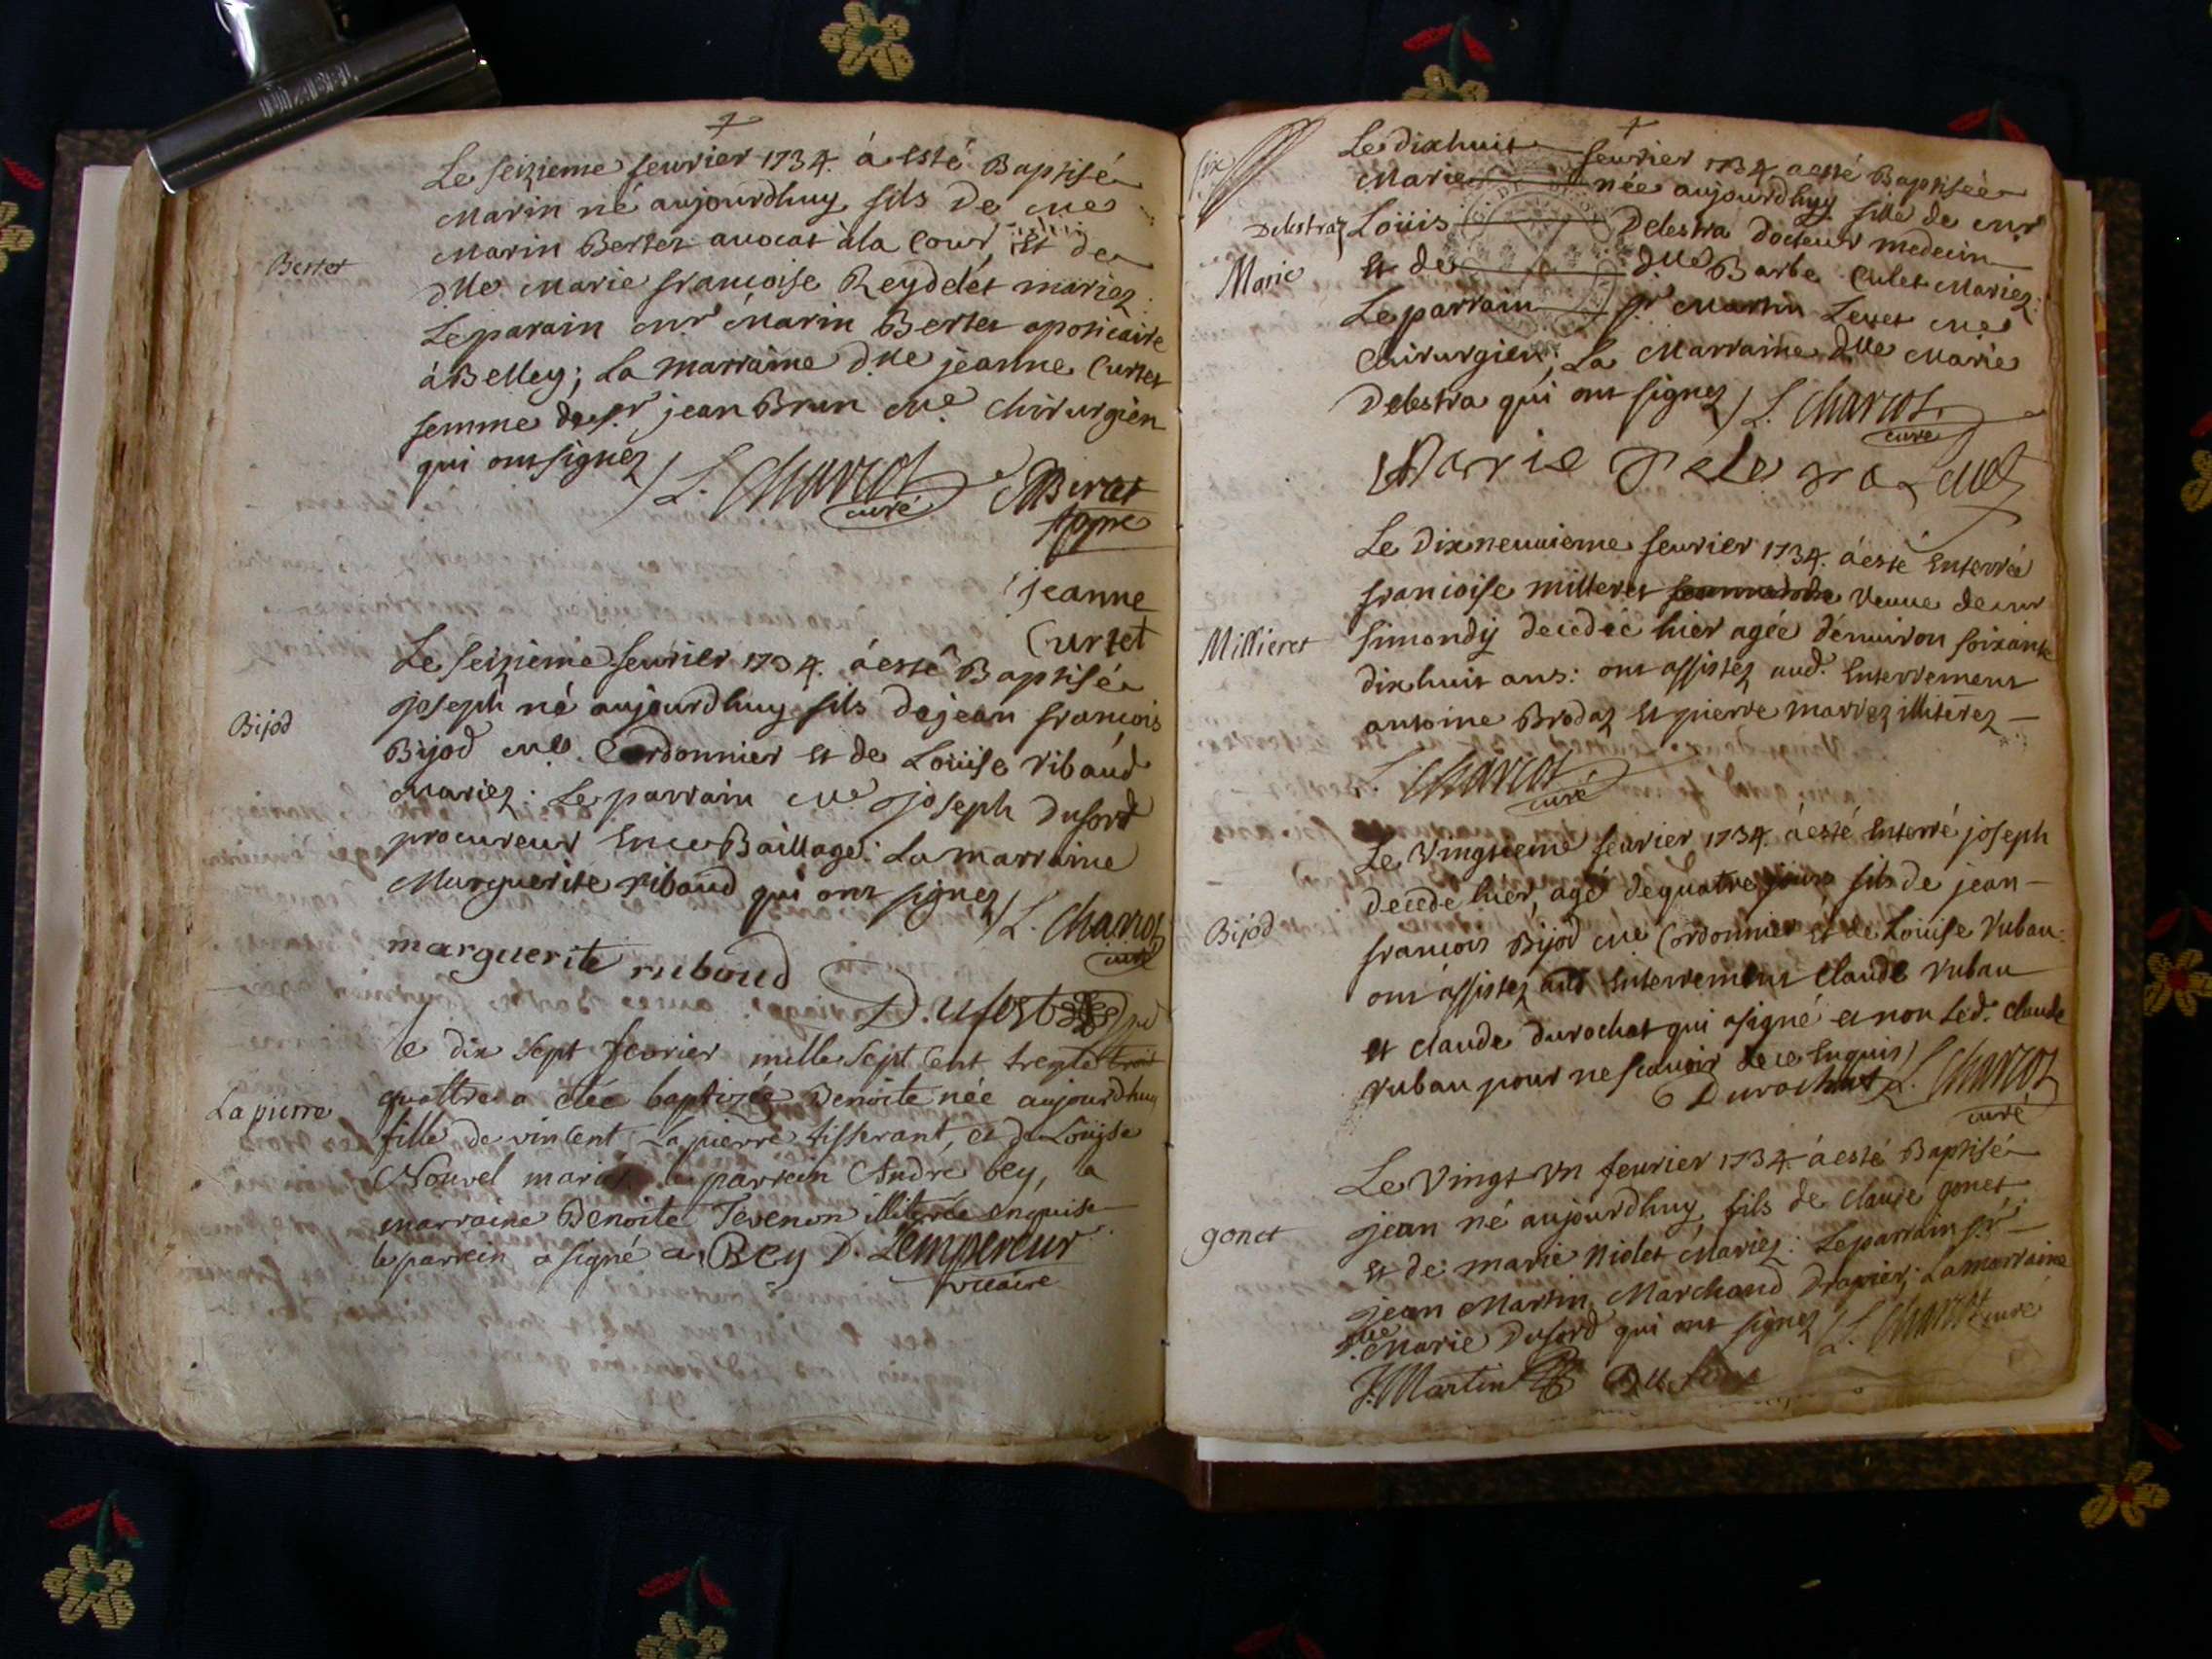 Le seizieme feurier 1734. á esté Baptisé
Marin né aujourdhuy fils de Me
Marin Bertet auocat à la Cour, Et de
Bertet
dlle Marie francoise Reydelet mariez.
Le parain mr Marin Bertet apoticaire
à Belley; La marraine dlle jeanne Curtet
femme de sr jean Brun Me Chirurgien
qui ont signez / L. Charcot
curé
MBertet
jeanne
Curtet
Le seizieme feurier 1734. á esté Baptisé
joseph né aujourdhuy fils de jean francois
Bijod
Bijod Me Cordonnier et de Loüise ribaud
Mariez: Le parrain Me joseph Duford
procureur En ce Baillage: La marraine
Marguerite ribaud qui ont signez / L. Charcot
curé
marguerite riboud
Dufort
le dix sept feurier mille sept cent trente trois
quattre a etée baptizée Benoite née aujourdhuy
La pierre
fille de vincent Lapierre tisserant, et de Louise
Nouvel mariez le parrein André bey, la
marraine Benoite Tevenon illiterée enquise
le parrein a signé a Bey D. Lempereur
viccaire
six
Le dixhuit feurier 1734 a esté Baptisée
Marie née aujourdhuy fille de mr
Delestraz
Loüis Delestra docteur medecin
Marie
Et de dlle Barbe Culet Mariez:
Le parrain sr Martin Levet Me
Chirurgien; La Marraine dlle Marie
Delestra qui ont signez / L. Charcot
curé
Marie Delestra Levet
Le dixneuuieme feurier 1734. á esté Enterrée
francoise milleret veuue de mr
Millieret
simondy decedée hier agée d'enuiron soixante
dixhuit ans: ont assistez aud. Enterrement
antoine Brodaz Et pierre marrez illiterez —
L. Charcot
curé
Le Vingtieme feurier 1734. á esté Enterré joseph
decedé hier, agé de quatre jours fils de jean —
Bijod
francois Bijod Me Cordonnier et de Loüise Rubau.
ont assistez aud Enterrement Claude rubau
Et claude durochat qui asigné et non Led. claude
rubau pour ne scauoir de ce Enquis /
Durochat L. Charcot
curé
Le Vingt Vn feurier 1734. á esté Baptisé
jean né aujourdhuy fils de Claude gonet
gonet
Et de marie Niolet Mariez: Le parrain sr
jean Martin Marchand Drapier; La marraine
dlle Marie Duford qui ont signez / L. Charcot curé
J. Martin Dufour